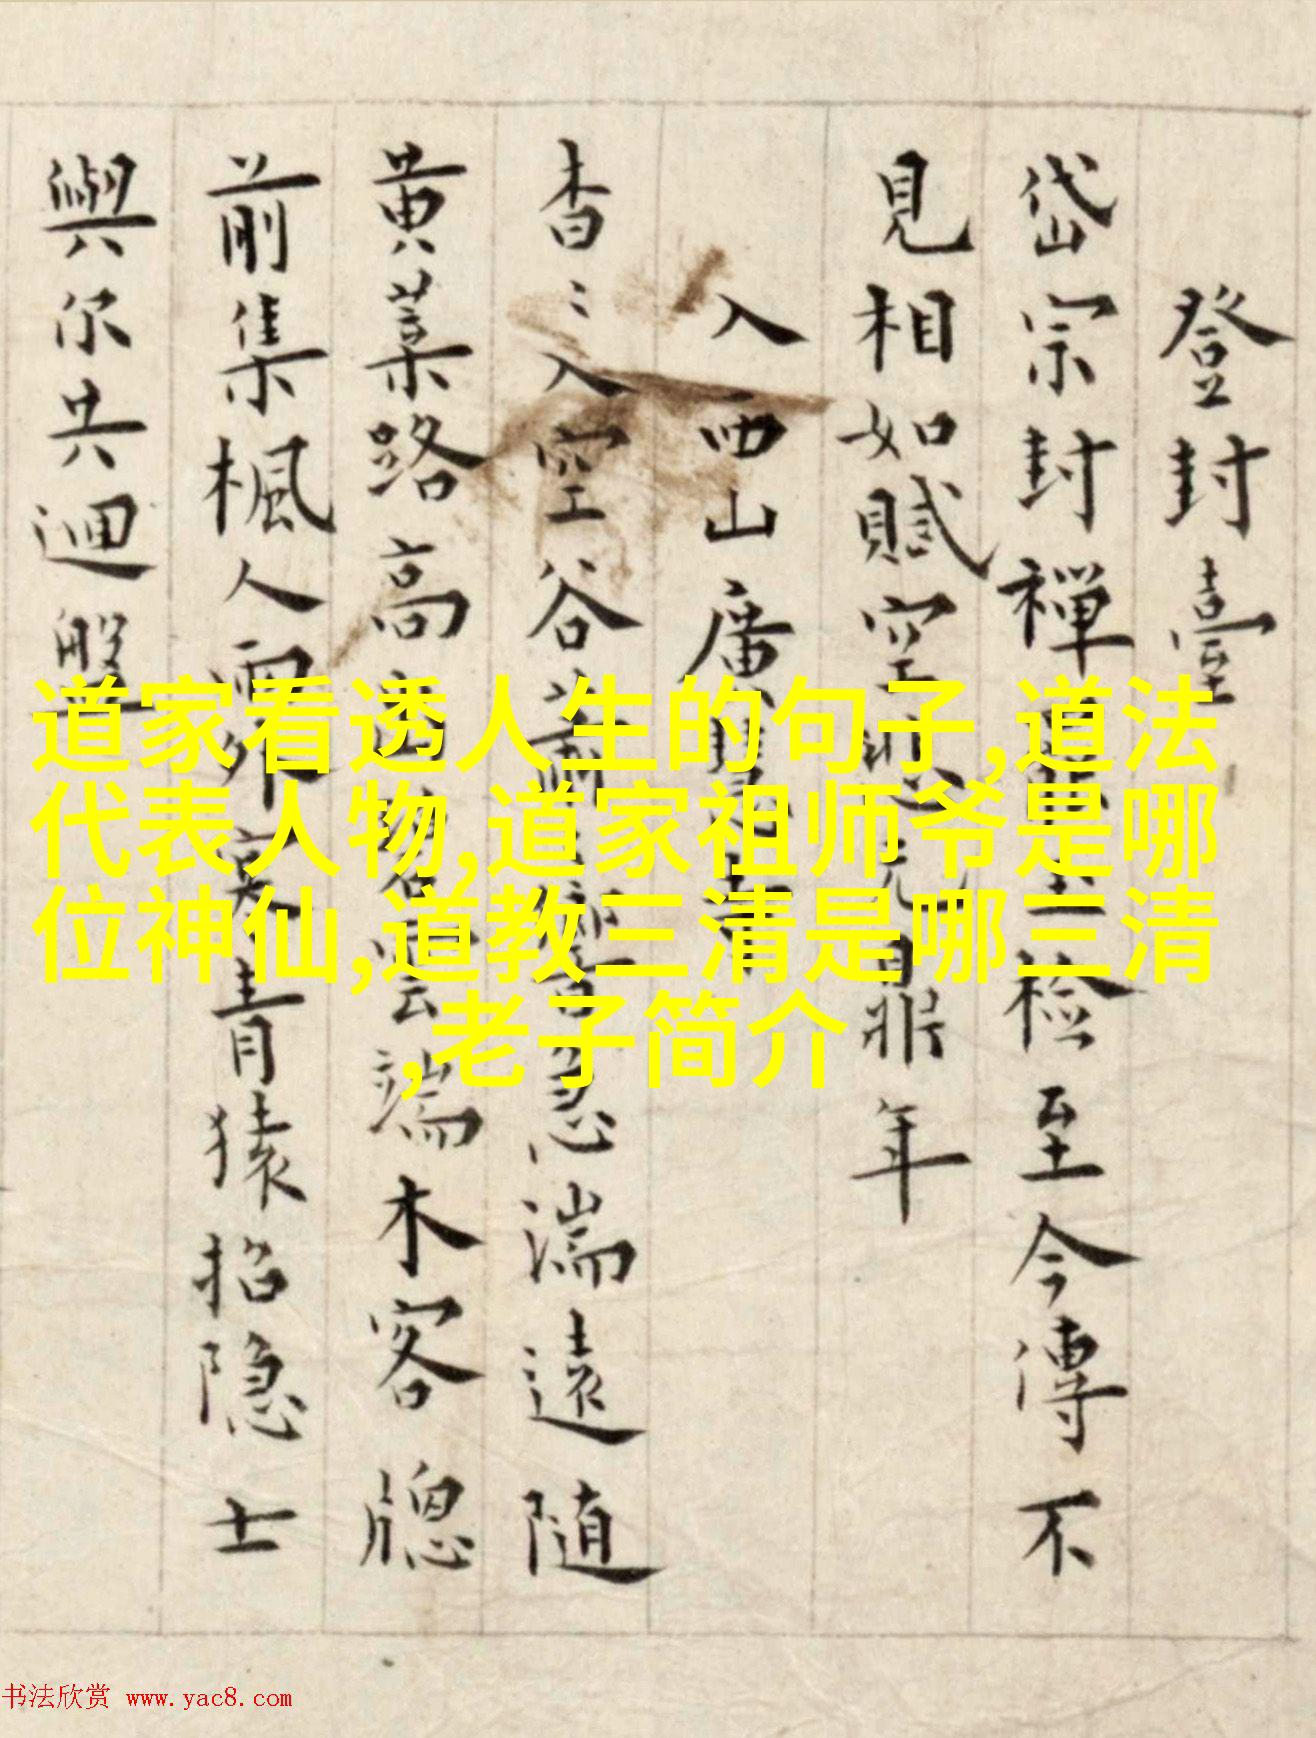 登封臺
岱宗封禪 检至今傳不
見相如賦空 元鼎年
入西山廣
杳〻入空谷 急湍遠随
黄葉路高 雲端木客牕
前集楓人 青猿招隐士
與尔共迴盤
道家看透人生的句子,道法
代表人物,道家祖师爷是哪
位神仙,道教三清是哪三清
,老子简介
书法欣赏 www.yac8.com